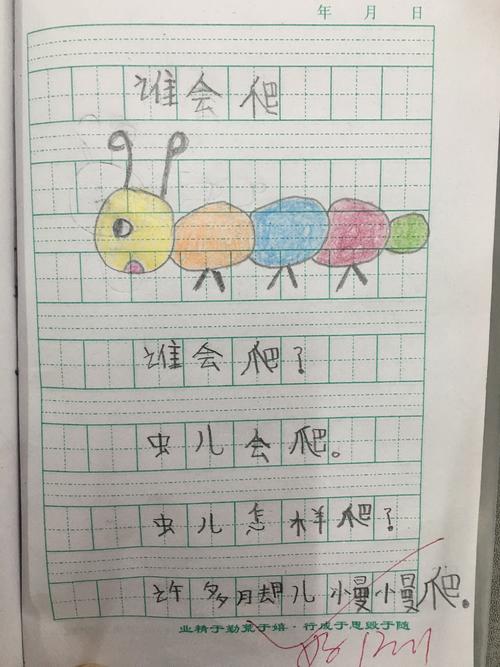 年 月 日
谁会爬
谁会爬?
虫儿会爬。
虫儿怎样爬?
许多脚儿慢慢爬。
业精于勤荒于嬉·行成于思毁于随